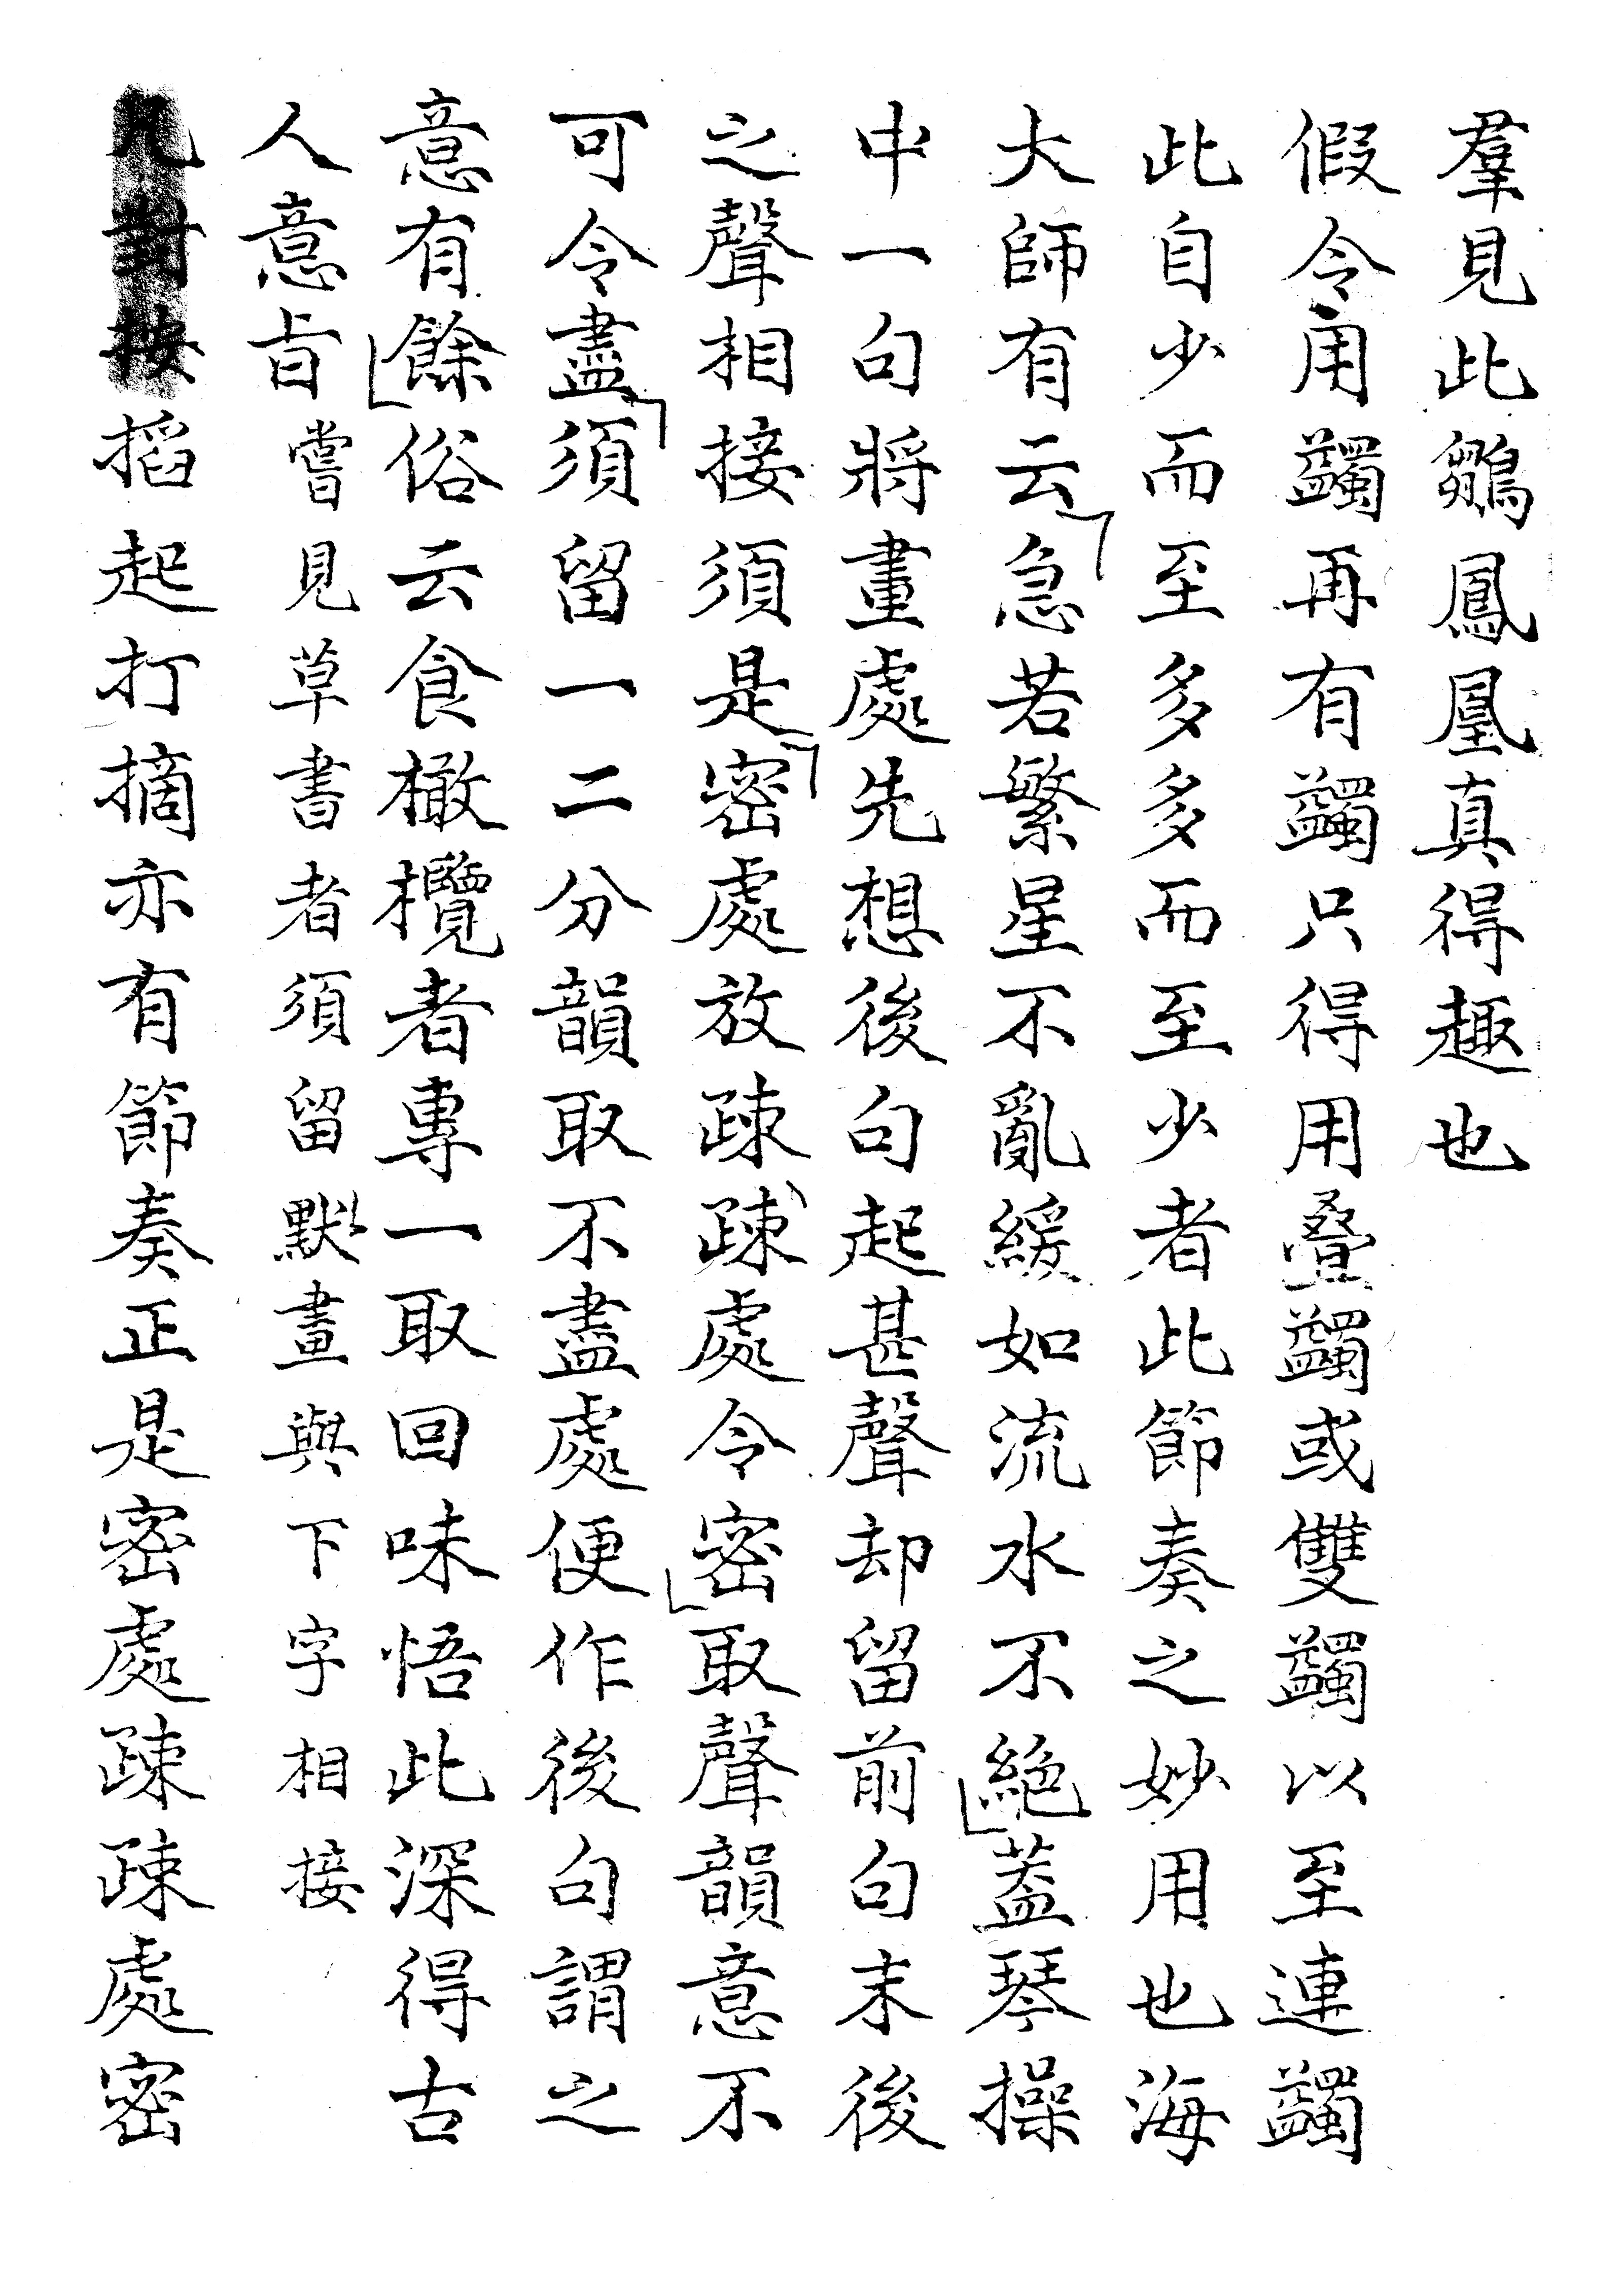 羣見此鶵鳳凰真得趣也
假令用蠲再有蠲只得用疊蠲或雙蠲以至連蠲
此自少而至多多而至少者此節奏之妙用也海
大師有云急若繁星不亂緩如流水不絶蓋琴操
中一句將畫處先想後句起甚聲却留前句末後
之聲相接須是密處放疎疎處令密取聲韻意不
可令盡須留一二分韻取不盡處便作後句謂之
意有餘俗云食橄欖者專一取回味悟此深得古
人意旨嘗見草書者須留默畫與下字相接
凡對按搯起打摘亦有節奏正是密處疎疎處密